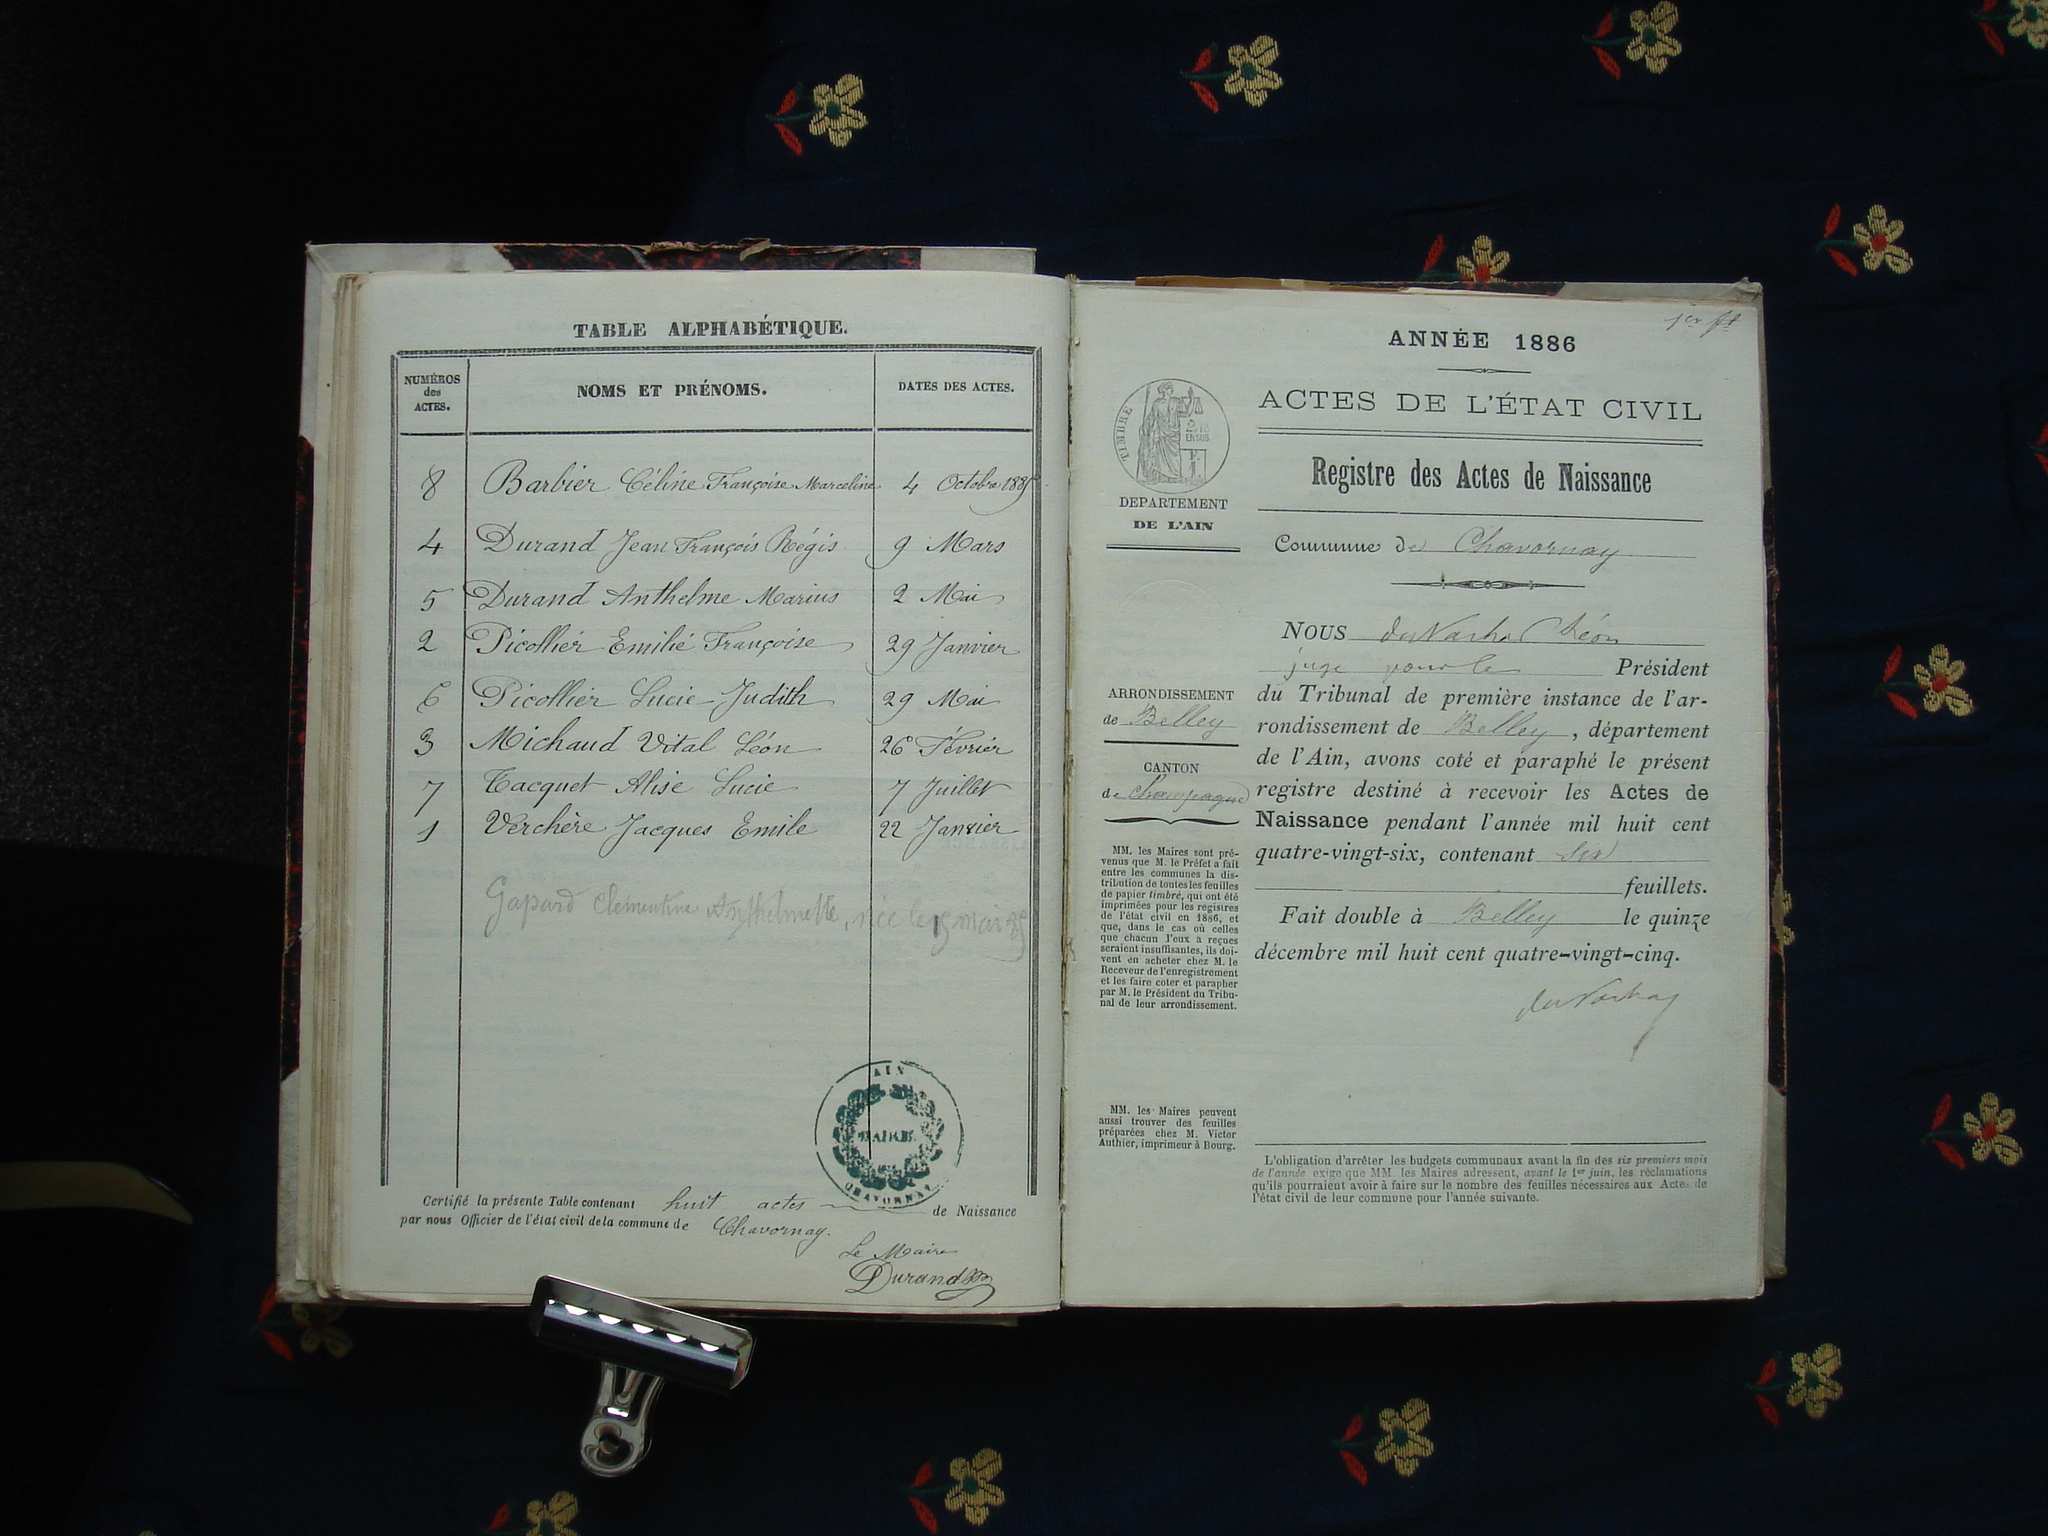 TABLE ALPHABÉTIQUE.
NUMÉROS des ACTES.
NOMS ET PRÉNOMS.
DATES DES ACTES.
8 Barbier Céline Françoise Marceline 4 Octobre 1885
4 Durand Jean François Régis 9 Mars
5 Durand Anthelme Marius 2 Mai
2 Picollier Emilie Françoise 29 Janvier
6 Picollier Lucie Judith 29 Mai
3 Michaud Vital Léon 26 Février
7 Tacquet Alise Lucie 7 Juillet
1 Verchère Jacques Emile 22 Janvier
Gapard Clementine Anthelmette, née le 15 mai
AIN
MAIRIE
CHAVORNAY
Certifié la présente Table contenant huit actes de Naissance
par nous Officier de l'état civil de la commune de Chavornay.
Le Maire
Durand
1er ft
ANNÉE 1886
TIMBRE
DEPARTEMENT
DE L'AIN
ACTES DE L'ÉTAT CIVIL
Registre des Actes de Naissance
Commune de Chavornay
ARRONDISSEMENT
de Belley
CANTON
de Champagne
MM. les Maires sont pré-
venus que M. le Préfet a fait
entre les communes la dis-
tribution de toutes les feuilles
de papier timbré, qui ont été
imprimées pour les registres
de l'état civil en 1886, et
que, dans le cas où celles
que chacun d'eux a reçues
seraient insuffisantes, ils doi-
vent en acheter chez M. le
Receveur de l'enregistrement
et les faire coter et parapher
par M. le Président du Tribu-
nal de leur arrondissement.
MM. les Maires peuvent
aussi trouver des feuilles
préparées chez M. Victor
Authier, imprimeur à Bourg.
NOUS Léon
juge pour le Président
du Tribunal de première instance de l'ar-
rondissement de Belley, département
de l'Ain, avons coté et paraphé le présent
registre destiné à recevoir les Actes de
Naissance pendant l'année mil huit cent
quatre-vingt-six, contenant six
feuillets.
Fait double à Belley le quinze
décembre mil huit cent quatre-vingt-cinq.
L'obligation d'arrêter les budgets communaux avant la fin des six premiers mois
de l'année exige que MM. les Maires adressent, avant le 1er juin, les réclamations
qu'ils pourraient avoir à faire sur le nombre des feuilles nécessaires aux Actes de
l'état civil de leur commune pour l'année suivante.